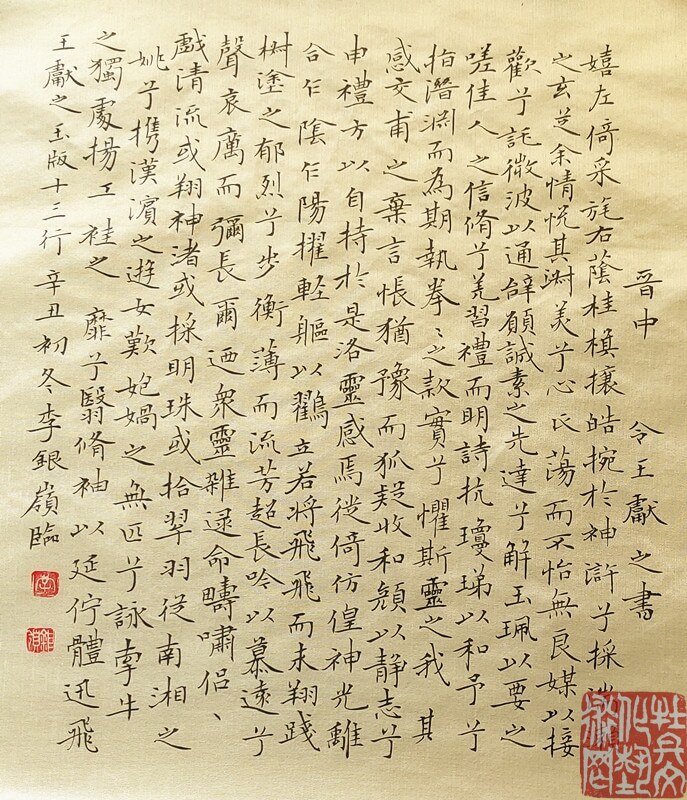 晉中 令王獻之書
嬉左倚采旄右蔭桂棋攘皓捥於神滸兮採湍瀨
之玄芝余情悅其淑美兮心蕩而不怡無良媒以接
歡兮託微波以通辭願誠素之先達兮解玉珮以要之
嗟佳人之信脩兮羌習禮而明詩抗瓊珶以和予兮
指潛淵而為期執拳〻之款實兮懼斯靈之我 其
感交甫之棄言悵猶豫而狐疑收和顏以静志兮
申禮方以自持於是洛靈感焉徙倚仿偟神光離
合乍陰乍陽擢輕軀以鸖立若將飛飛而未翔踐
椒塗之郁烈兮步衡薄而流芳超長吟以慕遠兮
聲哀厲而彌長爾迺衆靈雜遝命疇嘯侶、
戲清流或翔神渚或採明珠或拾翠羽從南湘之
姚兮攜漢濱之遊女歎匏媧之無匹兮詠牽牛
之獨處揚袿之 靡兮翳脩袖以延佇體迅飛
王獻之玉版十三行 辛丑初冬李銀嶺臨